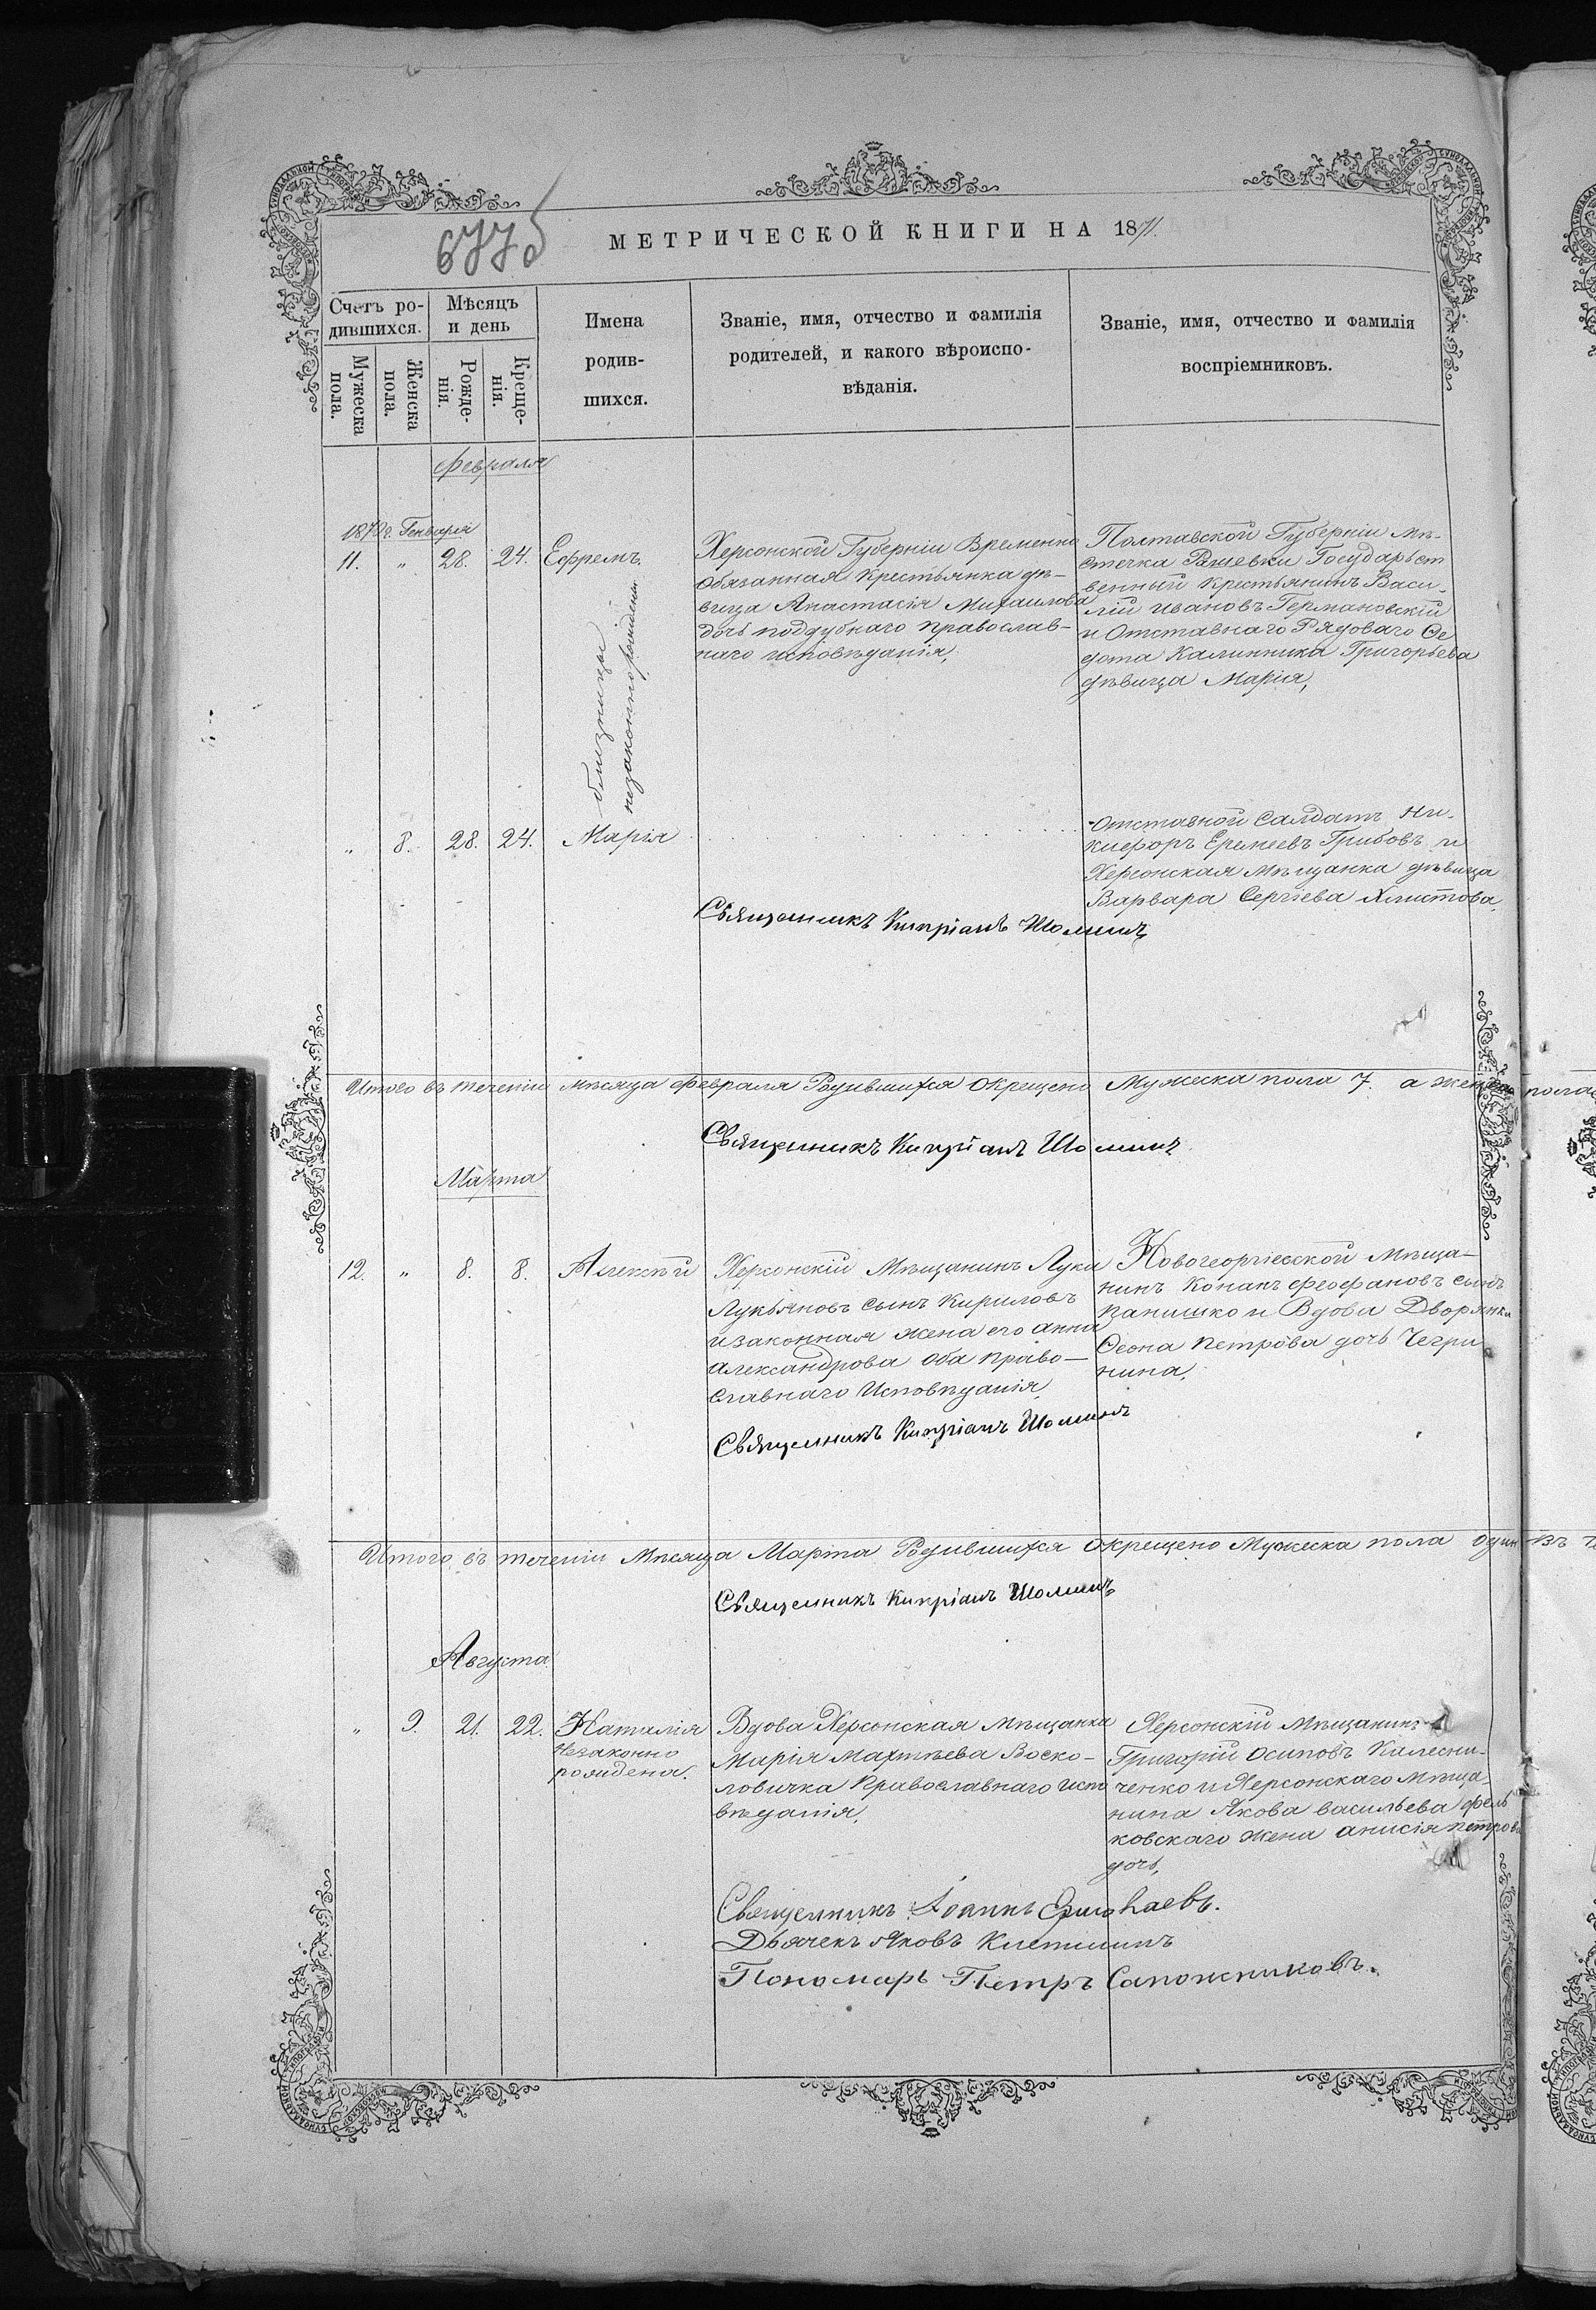 677б
МЕТРИЧЕСКОЙ КНИГИ НА 1871.
Счетъ ро-
дившихся.
Мужеска
пола.
Женска
пола.
Мѣсяцъ
и день
Рожде-
нія.
Креще-
нія.
Имена
родив-
шихся.
Званіе, имя, отчество и фамилія
родителей, и какого вѣроиспо-
вѣданія.
Званіе, имя, отчество и фамилія
воспріемниковъ.
Февраля
Генваря
11. " 28. 24. Ефремъ.
близнецы
незаконнорожденные
Херсонской Губерніи Временно
обязанная крестьянка дѣ-
вица Анастасія Михаилова
дочь поддубнаго православ-
наго исповѣданія,
Полтавской Губерніи мѣ-
стечка Рашевки Государьст
венный крестьянинъ Васи-
лій ивановъ Германовскій
и Отставнаго Рядоваго Ѳе
дота Калинника Григорьева
дѣвица Марія,
" 8. 28. 24. Марія
Отставной Салдатъ Ни-
кифоръ Еремеевъ Грибовъ и
Херсонская мѣщанка дѣвица
Варвара Сергіева Хлистова.
Священникъ Кипріанъ Шоминъ
Итого въ теченіи мѣсяца февраля Родившихся окрещено Мужеска пола 7. а женска пола
Священникъ Кипріанъ Шоминъ
Марта
12. " 8. 8. Алексѣй
Херсонскій Мѣщанинъ Лука
Лукьяновъ сынъ Кириловъ
и законная жена его анна
александрова оба право-
славнаго Исповѣданія
Новогеоргіевской мѣща-
нинъ Конанъ феофановъ сынъ
панишко и Вдова Дворянка
Ѳеона петрова дочь Чегри
нина.
Священникъ Кипріанъ Шоминъ
Итого въ теченіи Мѣсяца Марта Родившихся Окрещено Мужеска пола один въ
Священникъ Кипріанъ Шоминъ
Августа
" 9. 21. 22. Наталія
Незаконно
рождена.
Вдова Херсонская мѣщанка
Марія матѣева Воско-
ловичка Православнаго Исп
вѣданія,
Херсонскій Мѣщанинъ
Григорій осиповъ Калесни-
ченко и Херсонскаго мѣща-
нина Якова васильева фель
ковскаго жена анисія петрова
дочь,
Священникъ Іоаннъ
Дьячекъ Яковъ
Пономарь Петръ Сапожниковъ.